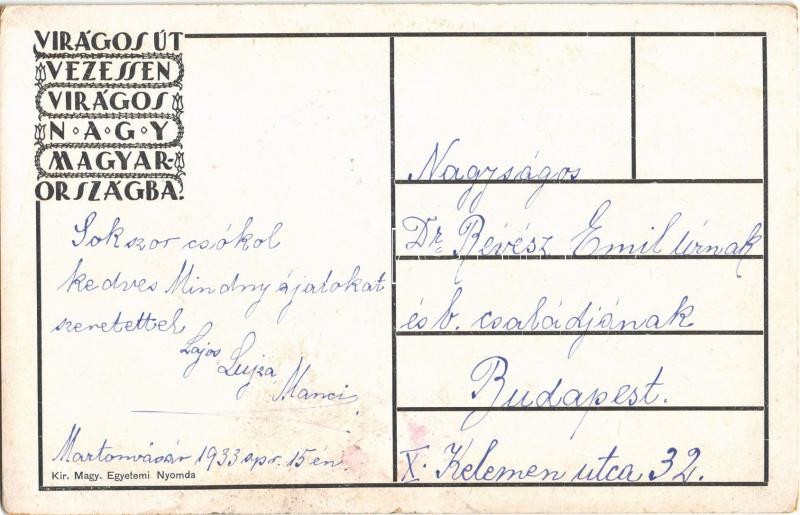 VIRÁGOS ÚT
VEZESSEN
VIRÁGOS
NAGY
MAGYAR-
ORSZÁGBA!
Sokszor csókol
kedves Mindnyájatokat
szeretettel
Lajos Lujza
Manci
Martonvásár 1933 apr. 15én.
Kir. Magy. Egyetemi Nyomda
Nagyságos
Dr. Révész Emil úrnak
és b. családjának
Budapest.
X. Kelemen utca 32.